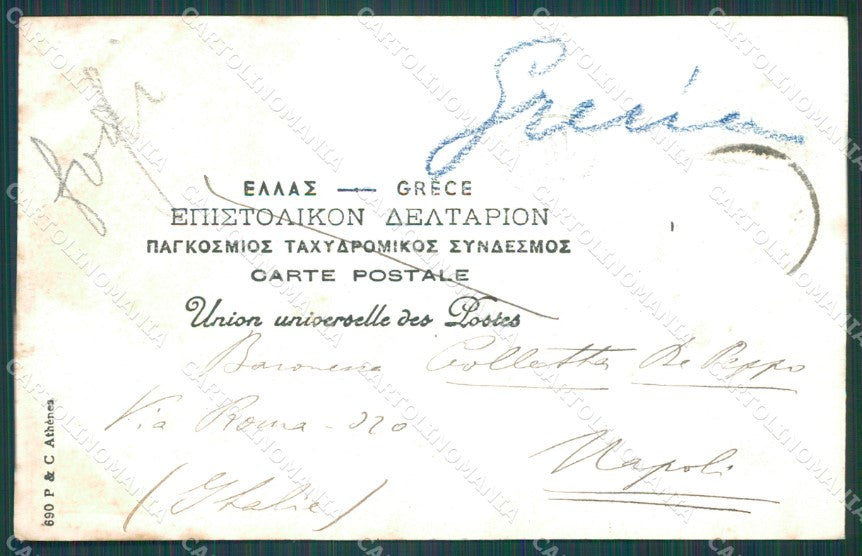 Grecia
ΕΛΛΑΣ — GRÈCE
ΕΠΙΣΤΟΛΙΚΟΝ ΔΕΛΤΑΡΙΟΝ
ΠΑΓΚΟΣΜΙΟΣ ΤΑΧΥΔΡΟΜΙΚΟΣ ΣΥΝΔΕΣΜΟΣ
CARTE POSTALE
Union universelle des Postes
Baronessa Colletta De Peppo
Via Roma - 320
Napoli
(Italie)
690 P & C Athènes
CARTOLINOMANIA